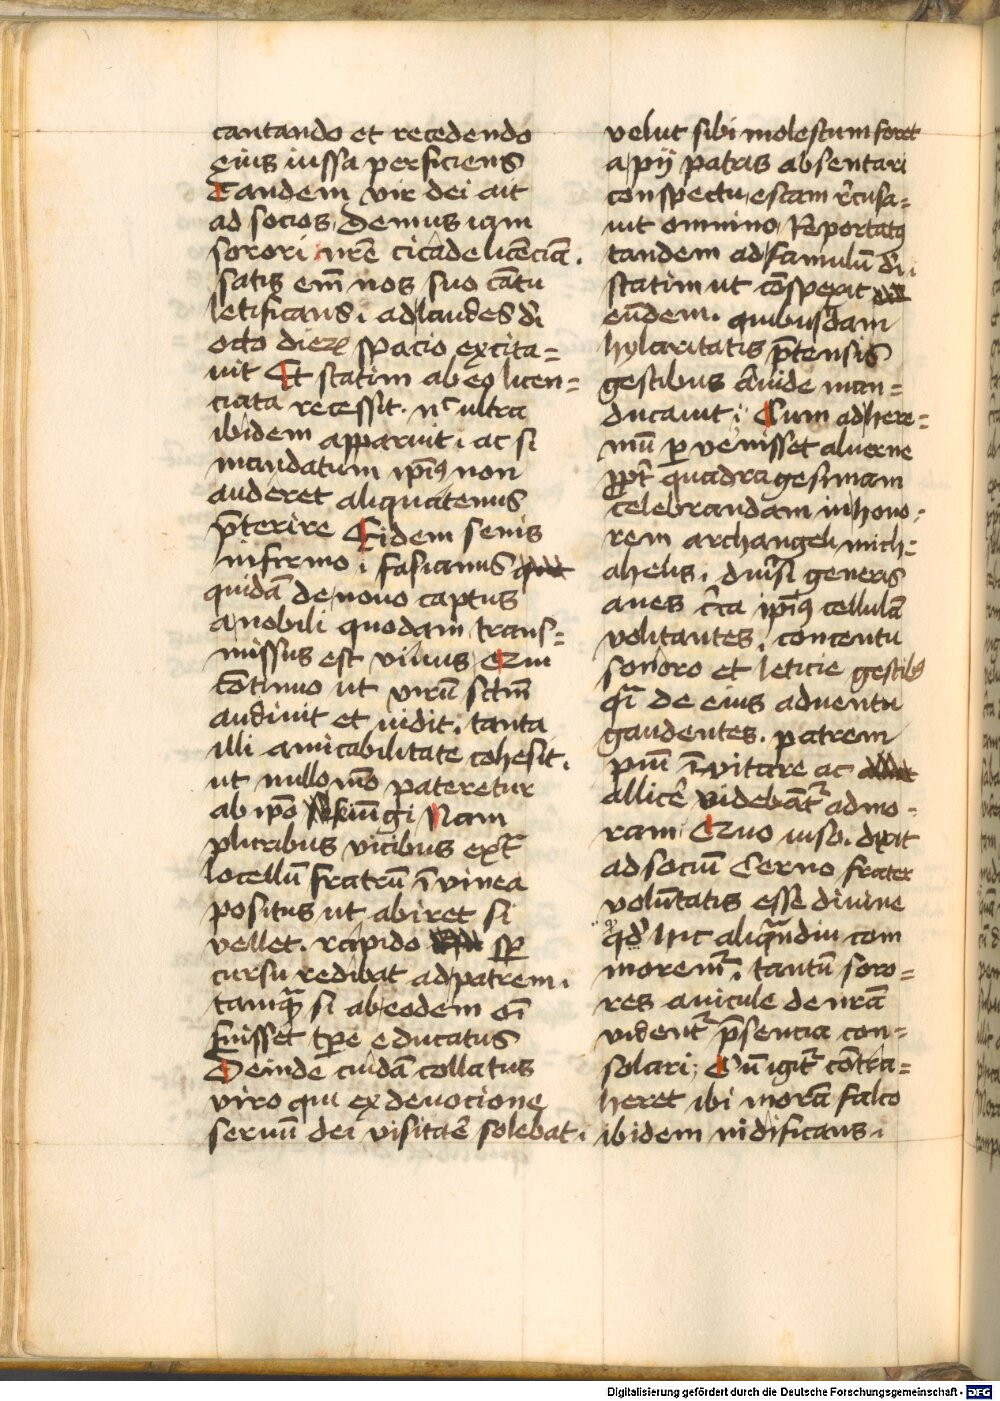 cantando et recedendo
eius iussa perficiens
Tandem vir dei ait
ad socios. Demus iam
sorori nr̄e cicade licēciā.
satis em̄ nos suo cātu
letificans. ad laudes dī
octo dierꝝ spacio excita=
uit Et statim ab eo licen=
ciata recessit. nᶜ ultra
ibidem apparuit. ac si
mandatum ip̄iꝰ non
auderet aliquatenus
p̄terire Eidem senis
infirmo. fasianus
quidā de nouo captus
a nobili quodam trans=
missus est viuus Qui
cōtinuo ut virū sctm̄
audiuit et uidit. tanta
illi amicabilitate cohesit.
ut nullo mō pateretur
ab ip̄o seiūgi Nam
pluribus vicibus ext͛
locellū fratrū ī vinea
positus ut abiret si
vellet. rapido sꝑ
cursu redibat ad patrem.
tamqᷓ si ab eodem oī
fuisset tp̄e educatus
Deinde cuidā collatus
viro qui ex deuocione
seruū dei visitar̄ solebat.
velut sibi molestum foret
a pij patris absentari
conspectu. escam r̄cusa=
uit omnino Reportatꝰ
tandem ad famulū dī.
statim ut cōspexit
eūdem. quibusdam
hylaritatis p̄tensis
gestibus auide man=
ducauit. Cum ad here=
mū ꝑ venisset aluerne
ꝓpt͛ quadragesimam
celebrandam in hono=
rem archangeli mich=
ahelis. diu͛si generis
aues c͛ca ip̄iꝰ cellulā
volitantes. concentu
sonoro et leticie gestibꝰ
qͣ de eius aduentu
gaudentes. patrem
piū īvitare ac
allicē videbāt͛ ad mo=
ram. Quo uiso. dixit
ad sociū Cerno frater
volūtatis esse diuine
qd̓ hic aliqᷓndiu com
morem͛. tantū soro=
res auicule de nr̄a
vident͛ p̄sentia con=
solari; Cū igit͛ cōtra=
heret ibi morā falco
ibidem nidificans.
Digitalisierung gefördert durch die Deutsche Forschungsgemeinschaft - DFG